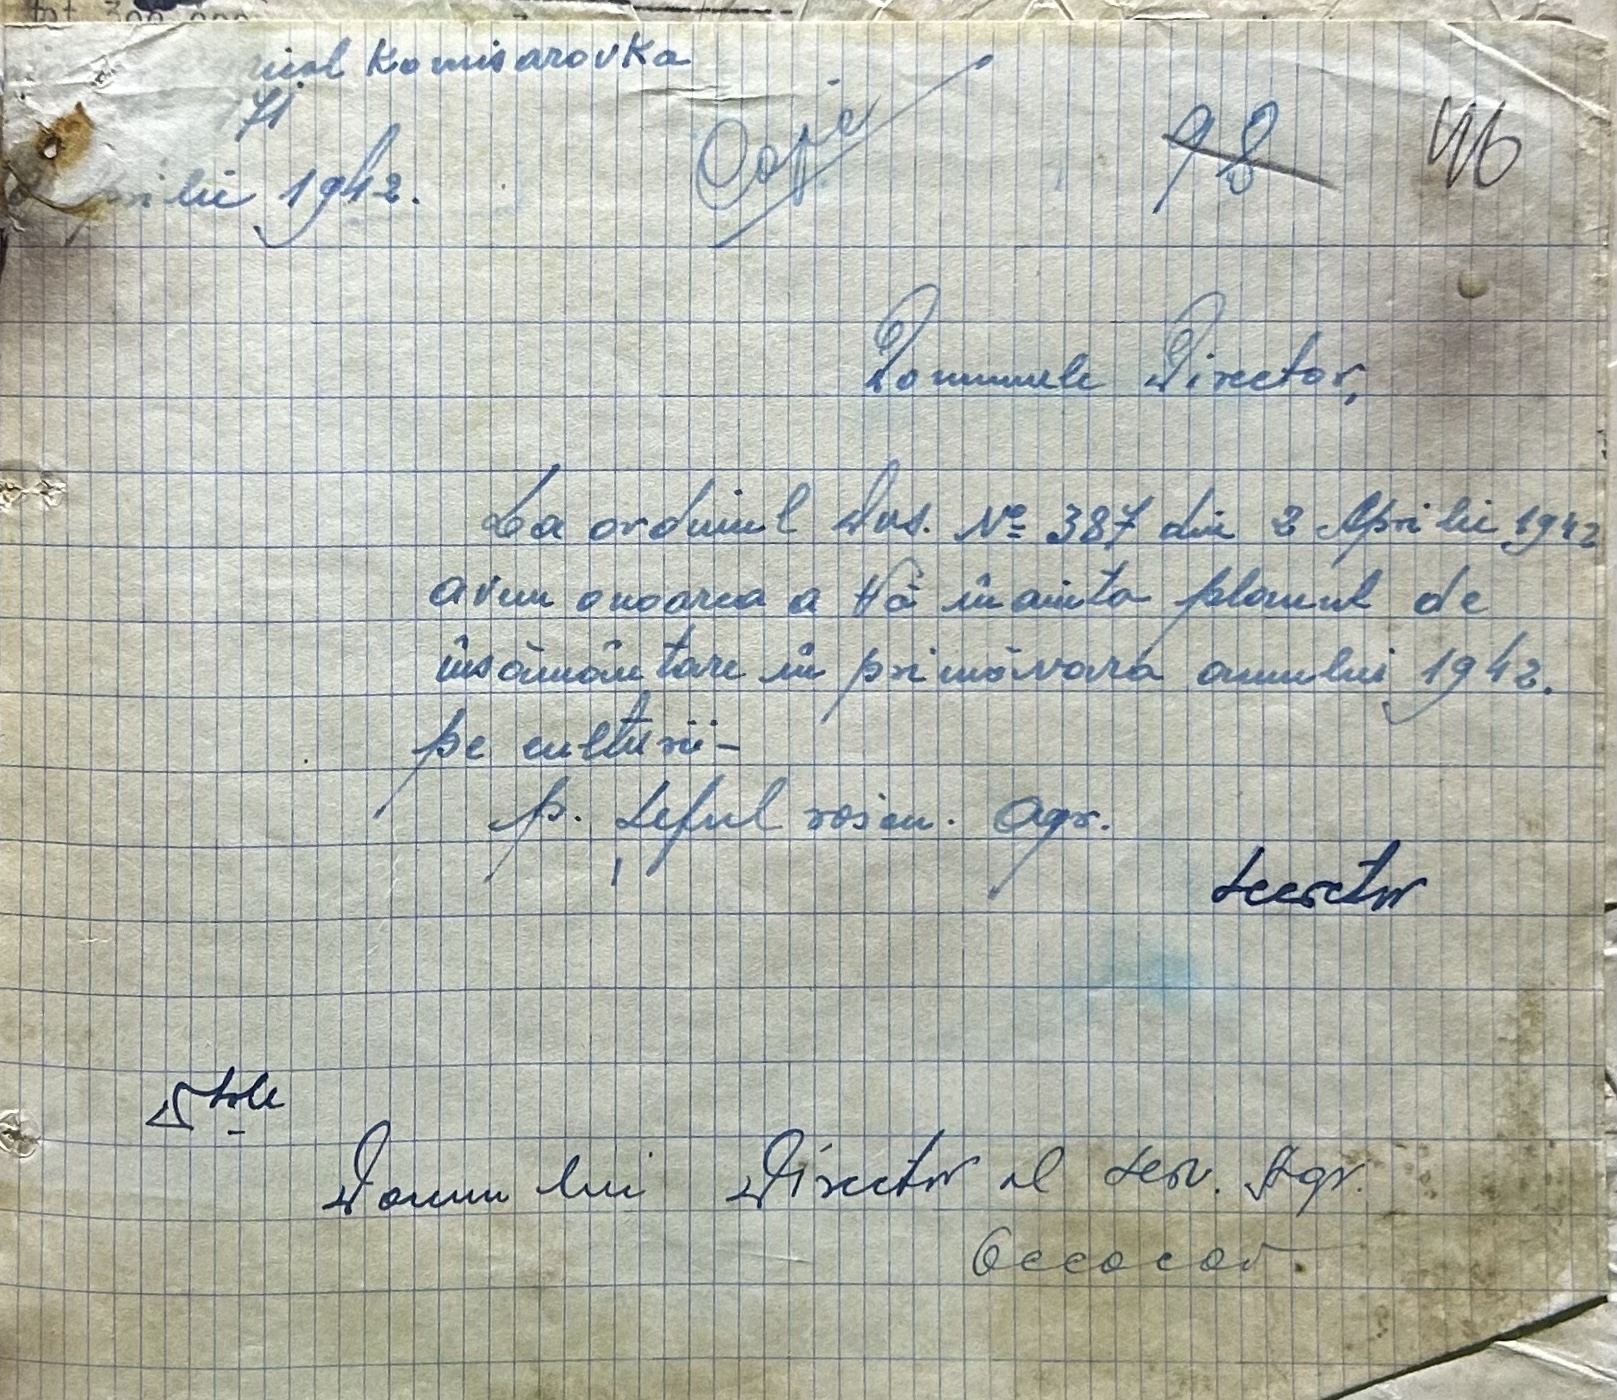 Komisarovka
71
Copie
98
46
Aprilie 1942.
Domnule Director,
La ordinul Dvs. No 387 din 2 Aprilie 1942
avem onoarea a Vă înainta planul de
însămăntare în primăvara anului 1942.
pe culturii-
p. Șeful raion. Agr.
Secretar
Domnu lui Director al Serv. Agr.